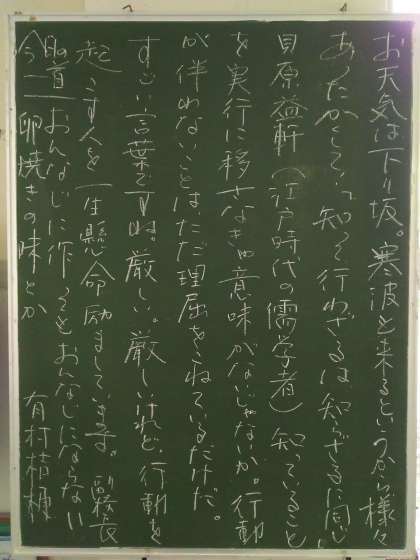 お天気は下り坂。寒波を来るというから様々
あったかくして、"知って行わざるは知らざるに同じ
貝原益軒(江戸時代の儒学者) 知っていること
を実行に移さなきゃ意味がないじゃないか。行動
が伴わないことは、ただ理屈をこねているだけだ。
すごい言葉ですね。厳しい。厳しいけれど、行動を
起こす人を一生懸命励ましています。"
おんなじに作ってもおんなじにならない
今一 卵焼きの味とか 有村桔梗